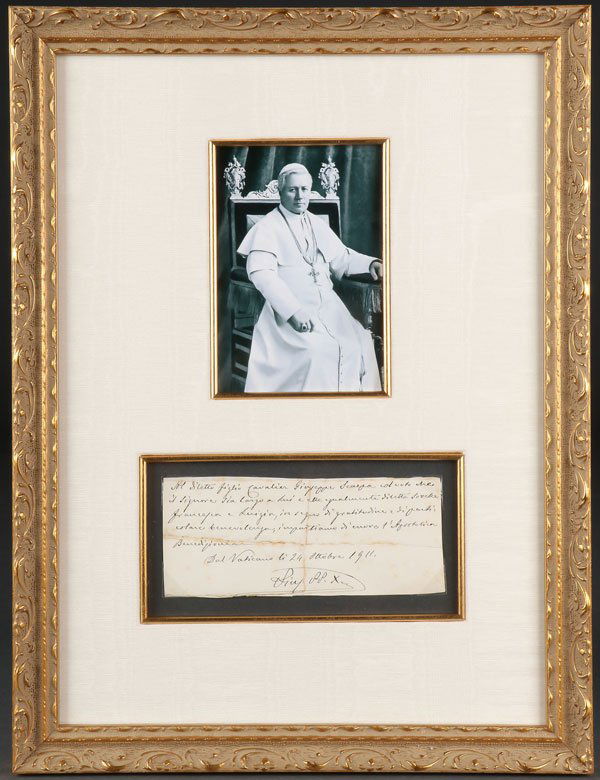 Al diletto figlio Cavalier Giuseppe Scarpa col voto che
il Signore sia largo a Lui e alle egualmente dilette sorelle
Francesca e Luigia, in segno di gratitudine e di parti
colare benevolenza, impartiamo di cuore l'Apostolica
Benedizione.
Dal Vaticano li 24 Ottobre 1911.
Pius PP. X